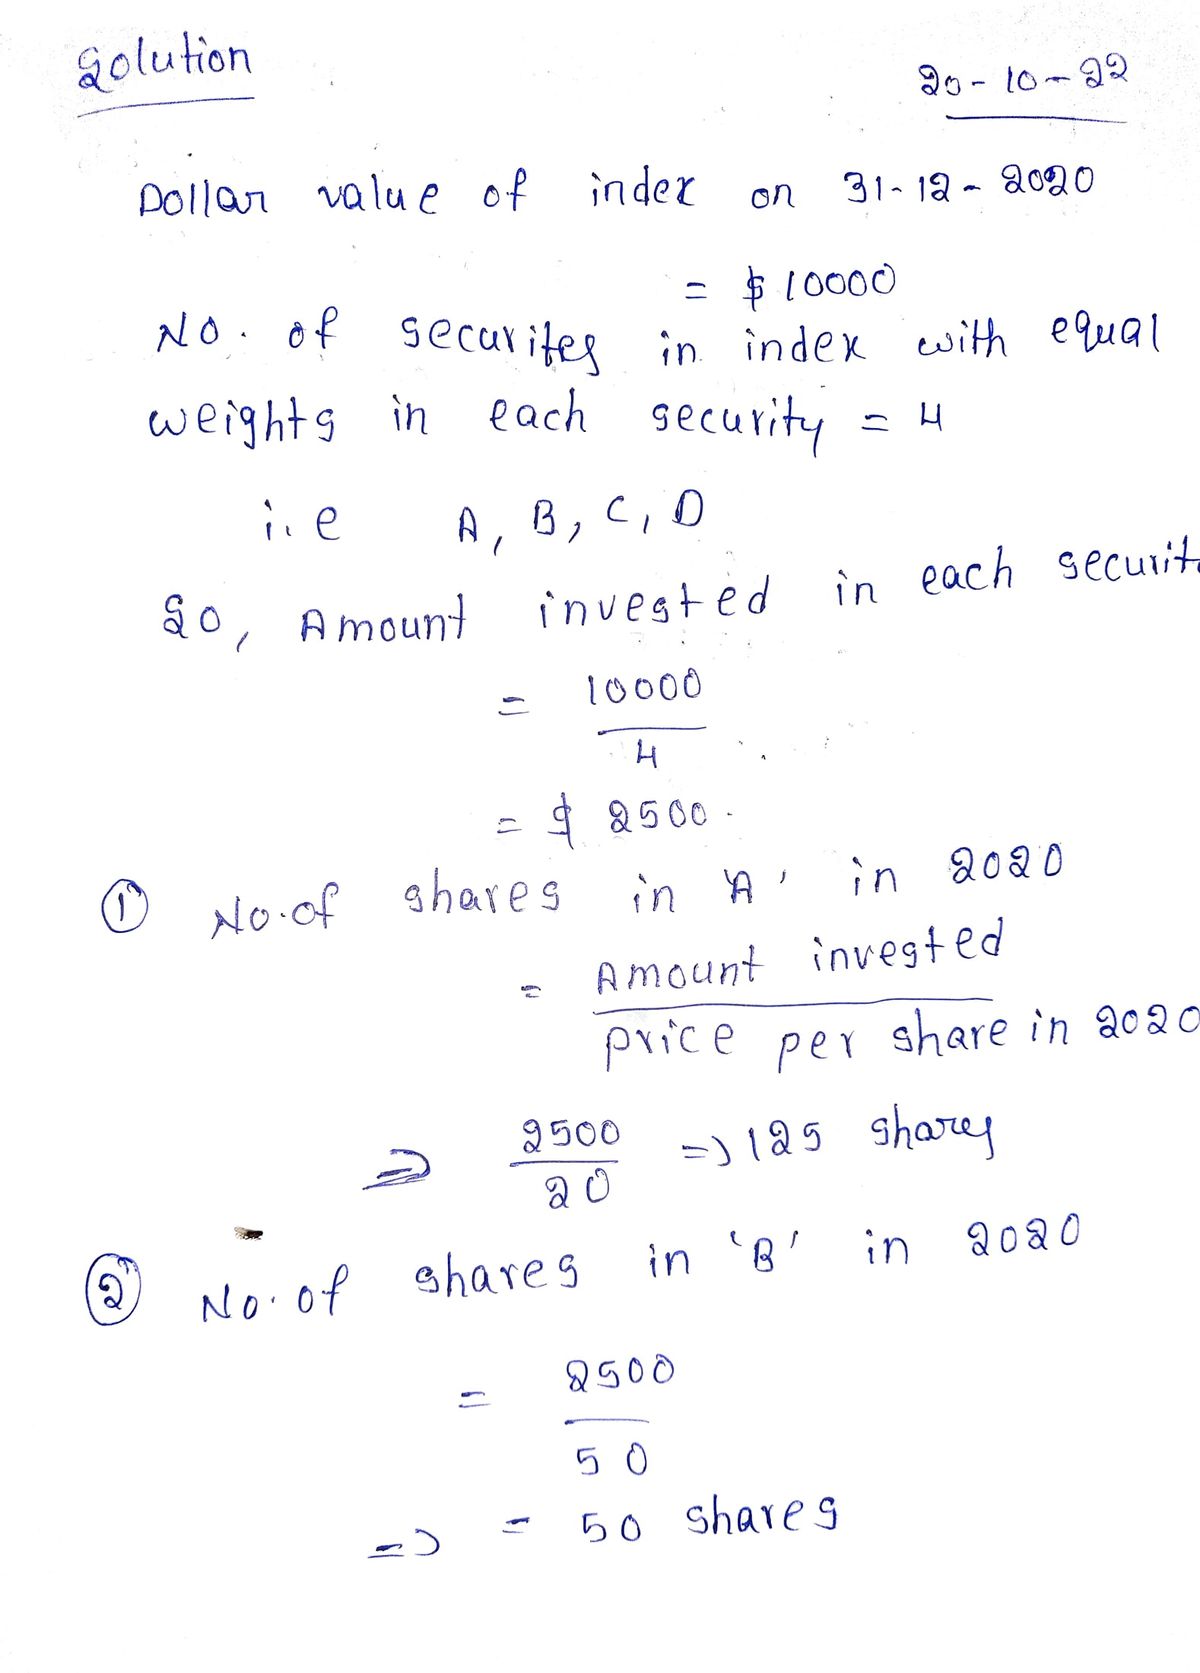 Solution
20-10-22
Dollar value of index on 31-12-2020
= $ 10000
No. of securites in index with equal
weights in each security = 4
i.e A, B, C, D
So, Amount invested in each securit
= 10000
4
= $ 2500.
① No. of shares in 'A' in 2020
= Amount invested
price per share in 2020
⇒ 2500 => 125 shares
20
② No. of shares in 'B' in 2020
= 2500
50
=> = 50 shares